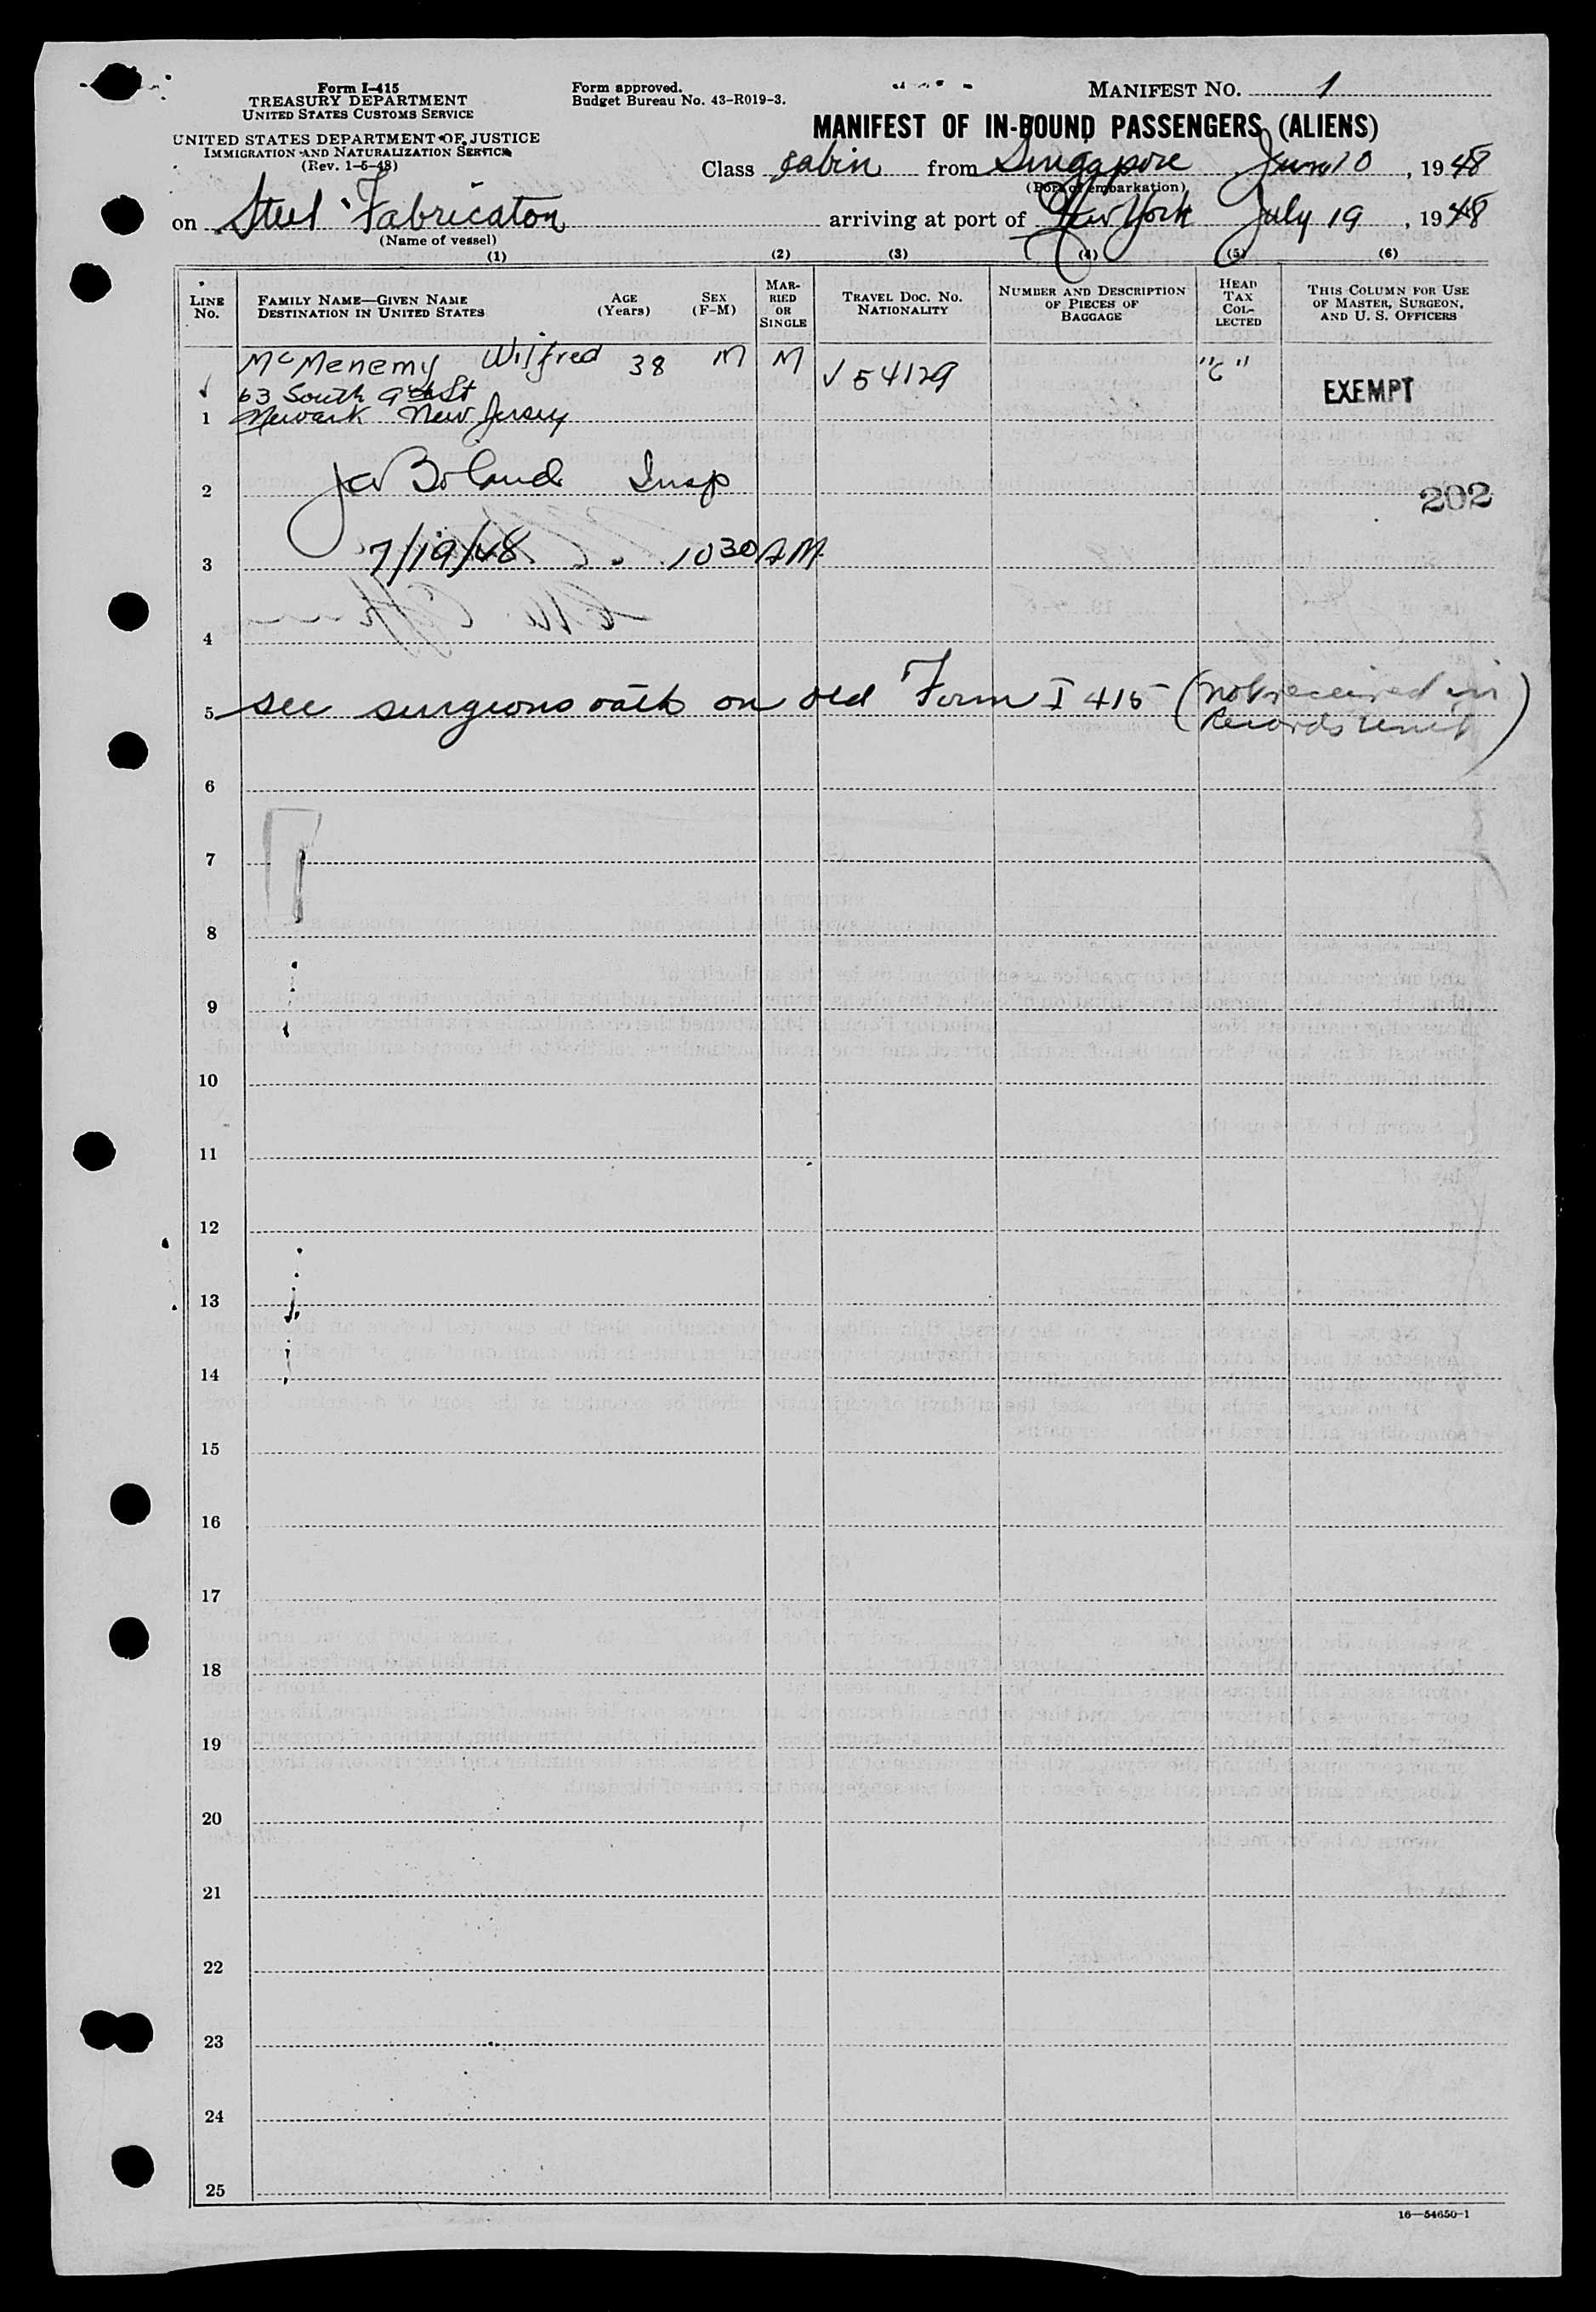 Form I-415
TREASURY DEPARTMENT
UNITED STATES CUSTOMS SERVICE
UNITED STATES DEPARTMENT OF JUSTICE
IMMIGRATION AND NATURALIZATION SERVICE
(Rev. 1-5-48)
Form approved.
Budget Bureau No. 43-R019-3.
MANIFEST NO. 1
MANIFEST OF IN-BOUND PASSENGERS (ALIENS)
Class cabin from Singapore June 10, 1948
(Port of embarkation)
on Steel Fabricator arriving at port of New York July 19, 1948
(Name of vessel)
(1) (2) (3) (4) (5) (6)
LINE No.
FAMILY NAME—GIVEN NAME
DESTINATION IN UNITED STATES
AGE (Years)
SEX (F-M)
MARRIED OR SINGLE
TRAVEL DOC. NO.
NATIONALITY
NUMBER AND DESCRIPTION OF PIECES OF BAGGAGE
HEAD TAX COLLECTED
THIS COLUMN FOR USE OF MASTER, SURGEON, AND U. S. OFFICERS
McMenemy Wilfred 38 M M V 54129 "C" EXEMPT
63 South 9th St
1 Newark New Jersey
2 Boland Insp 202
3 7/19/48 10 30 AM
4
5 see surgeons oath on old Form I 415 (not received in
Records Unit)
6
7
8
9
10
11
12
13
14
15
16
17
18
19
20
21
22
23
24
25
16—54650-1